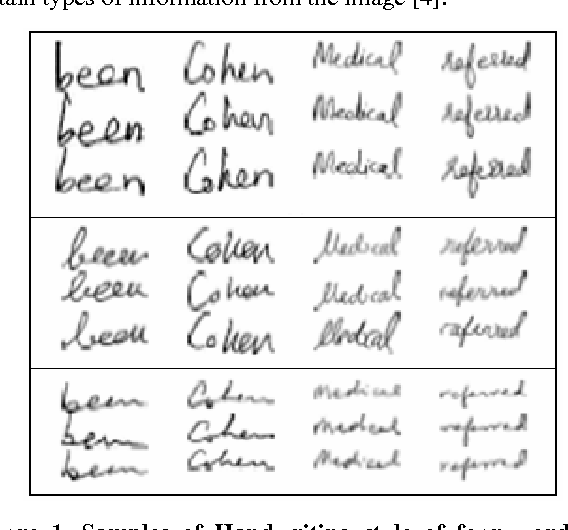 tain types of information from the image [4].
been Cohen Medical referred
been Cohen Medical referred
been Cohen Medical referred
been Cohen Medical referred
been Cohen Medical referred
been Cohen Medical referred
been Cohen Medical referred
been Cohen Medical referred
been Cohen Medical referred
1. Samples of Hand writing style of